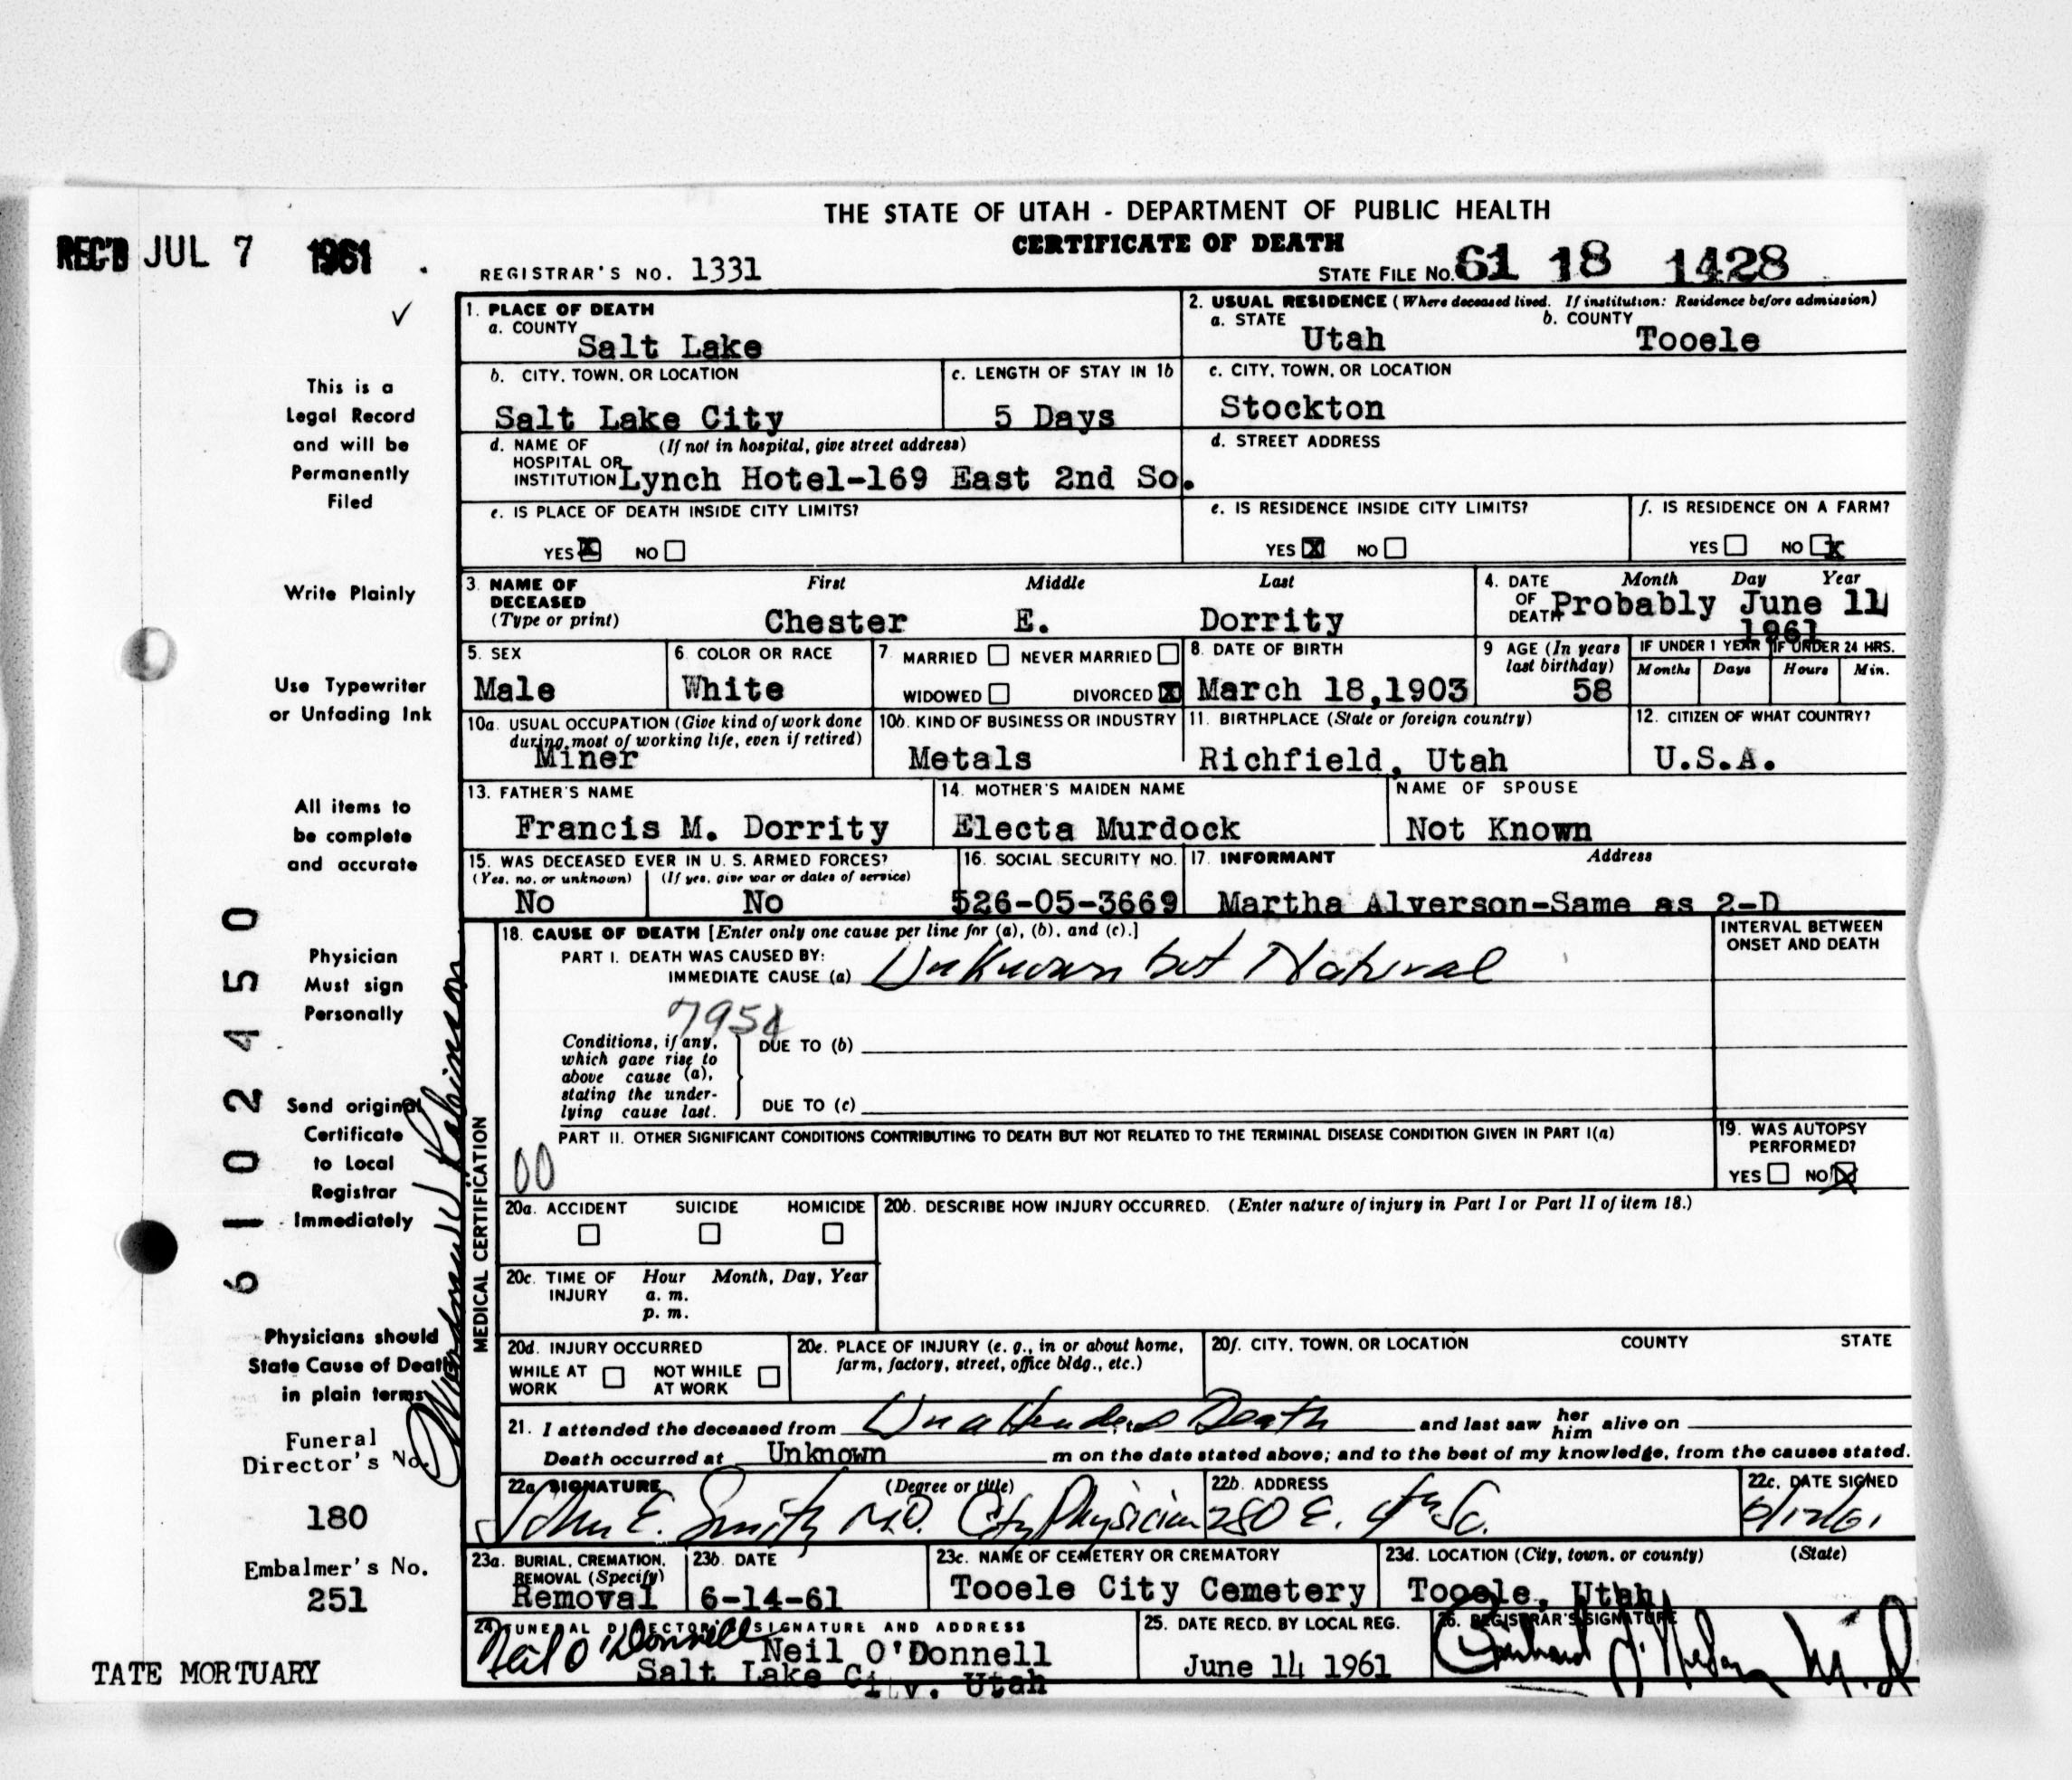 THE STATE OF UTAH - DEPARTMENT OF PUBLIC HEALTH
CERTIFICATE OF DEATH
REC'D JUL 7 1961
REGISTRAR'S NO. 1331
STATE FILE NO. 61 18 1428
1. PLACE OF DEATH
a. COUNTY
Salt Lake
2. USUAL RESIDENCE (Where deceased lived. If institution: Residence before admission)
a. STATE
Utah
b. COUNTY
Tooele
b. CITY, TOWN, OR LOCATION
Salt Lake City
c. LENGTH OF STAY IN 1b
5 Days
c. CITY, TOWN, OR LOCATION
Stockton
d. NAME OF (If not in hospital, give street address)
HOSPITAL OR
INSTITUTION Lynch Hotel-169 East 2nd So.
d. STREET ADDRESS
e. IS PLACE OF DEATH INSIDE CITY LIMITS?
YES X NO
e. IS RESIDENCE INSIDE CITY LIMITS?
YES X NO
f. IS RESIDENCE ON A FARM?
YES NO X
3. NAME OF
DECEASED
(Type or print)
First Middle Last
Chester E. Dorrity
4. DATE OF DEATH
Month Day Year
Probably June 11
1961
5. SEX
Male
6. COLOR OR RACE
White
7. MARRIED NEVER MARRIED
WIDOWED DIVORCED X
8. DATE OF BIRTH
March 18,1903
9 AGE (In years
last birthday)
58
IF UNDER 1 YEAR
Months Days
IF UNDER 24 HRS.
Hours Min.
10a. USUAL OCCUPATION (Give kind of work done
during most of working life, even if retired)
Miner
10b. KIND OF BUSINESS OR INDUSTRY
Metals
11. BIRTHPLACE (State or foreign country)
Richfield, Utah
12. CITIZEN OF WHAT COUNTRY?
U.S.A.
13. FATHER'S NAME
Francis M. Dorrity
14. MOTHER'S MAIDEN NAME
Electa Murdock
NAME OF SPOUSE
Not Known
15. WAS DECEASED EVER IN U. S. ARMED FORCES?
(Yes, no, or unknown) (If yes, give war or dates of service)
No No
16. SOCIAL SECURITY NO.
526-05-3669
17. INFORMANT Address
Martha Alverson-Same as 2-D
MEDICAL CERTIFICATION
18. CAUSE OF DEATH [Enter only one cause per line for (a), (b), and (c).]
INTERVAL BETWEEN
ONSET AND DEATH
PART I. DEATH WAS CAUSED BY:
IMMEDIATE CAUSE (a) Unknown but Natural
795
Conditions, if any,
which gave rise to
above cause (a),
stating the under-
lying cause last.
DUE TO (b)
DUE TO (c)
PART II. OTHER SIGNIFICANT CONDITIONS CONTRIBUTING TO DEATH BUT NOT RELATED TO THE TERMINAL DISEASE CONDITION GIVEN IN PART I(a)
00
19. WAS AUTOPSY
PERFORMED?
YES NO X
20a. ACCIDENT SUICIDE HOMICIDE
20b. DESCRIBE HOW INJURY OCCURRED. (Enter nature of injury in Part I or Part II of item 18.)
20c. TIME OF INJURY
Hour Month, Day, Year
a. m.
p. m.
20d. INJURY OCCURRED
WHILE AT WORK NOT WHILE AT WORK
20e. PLACE OF INJURY (e. g., in or about home,
farm, factory, street, office bldg., etc.)
20f. CITY, TOWN, OR LOCATION COUNTY STATE
21. I attended the deceased from Unattended Death and last saw her him alive on
Death occurred at Unknown m on the date stated above; and to the best of my knowledge, from the causes stated.
22a. SIGNATURE (Degree or title)
John E. Smith M.D. City Physician
22b. ADDRESS
280 E. 4th So.
22c. DATE SIGNED
6/12/61
23a. BURIAL, CREMATION,
REMOVAL (Specify)
Removal
23b. DATE
6-14-61
23c. NAME OF CEMETERY OR CREMATORY
Tooele City Cemetery
23d. LOCATION (City, town, or county) (State)
Tooele, Utah
24. FUNERAL DIRECTOR'S SIGNATURE AND ADDRESS
Neil O'Donnell
Neil O'Donnell
Salt Lake City, Utah
25. DATE RECD. BY LOCAL REG.
June 14 1961
26. REGISTRAR'S SIGNATURE
This is a
Legal Record
and will be
Permanently
Filed
Write Plainly
Use Typewriter
or Unfading Ink
All items to
be complete
and accurate
Physician
Must sign
Personally
Send original
Certificate
to Local
Registrar
Immediately
Physicians should
State Cause of Death
in plain terms
Funeral
Director's No.
180
Embalmer's No.
251
TATE MORTUARY
61 02450
Robinson